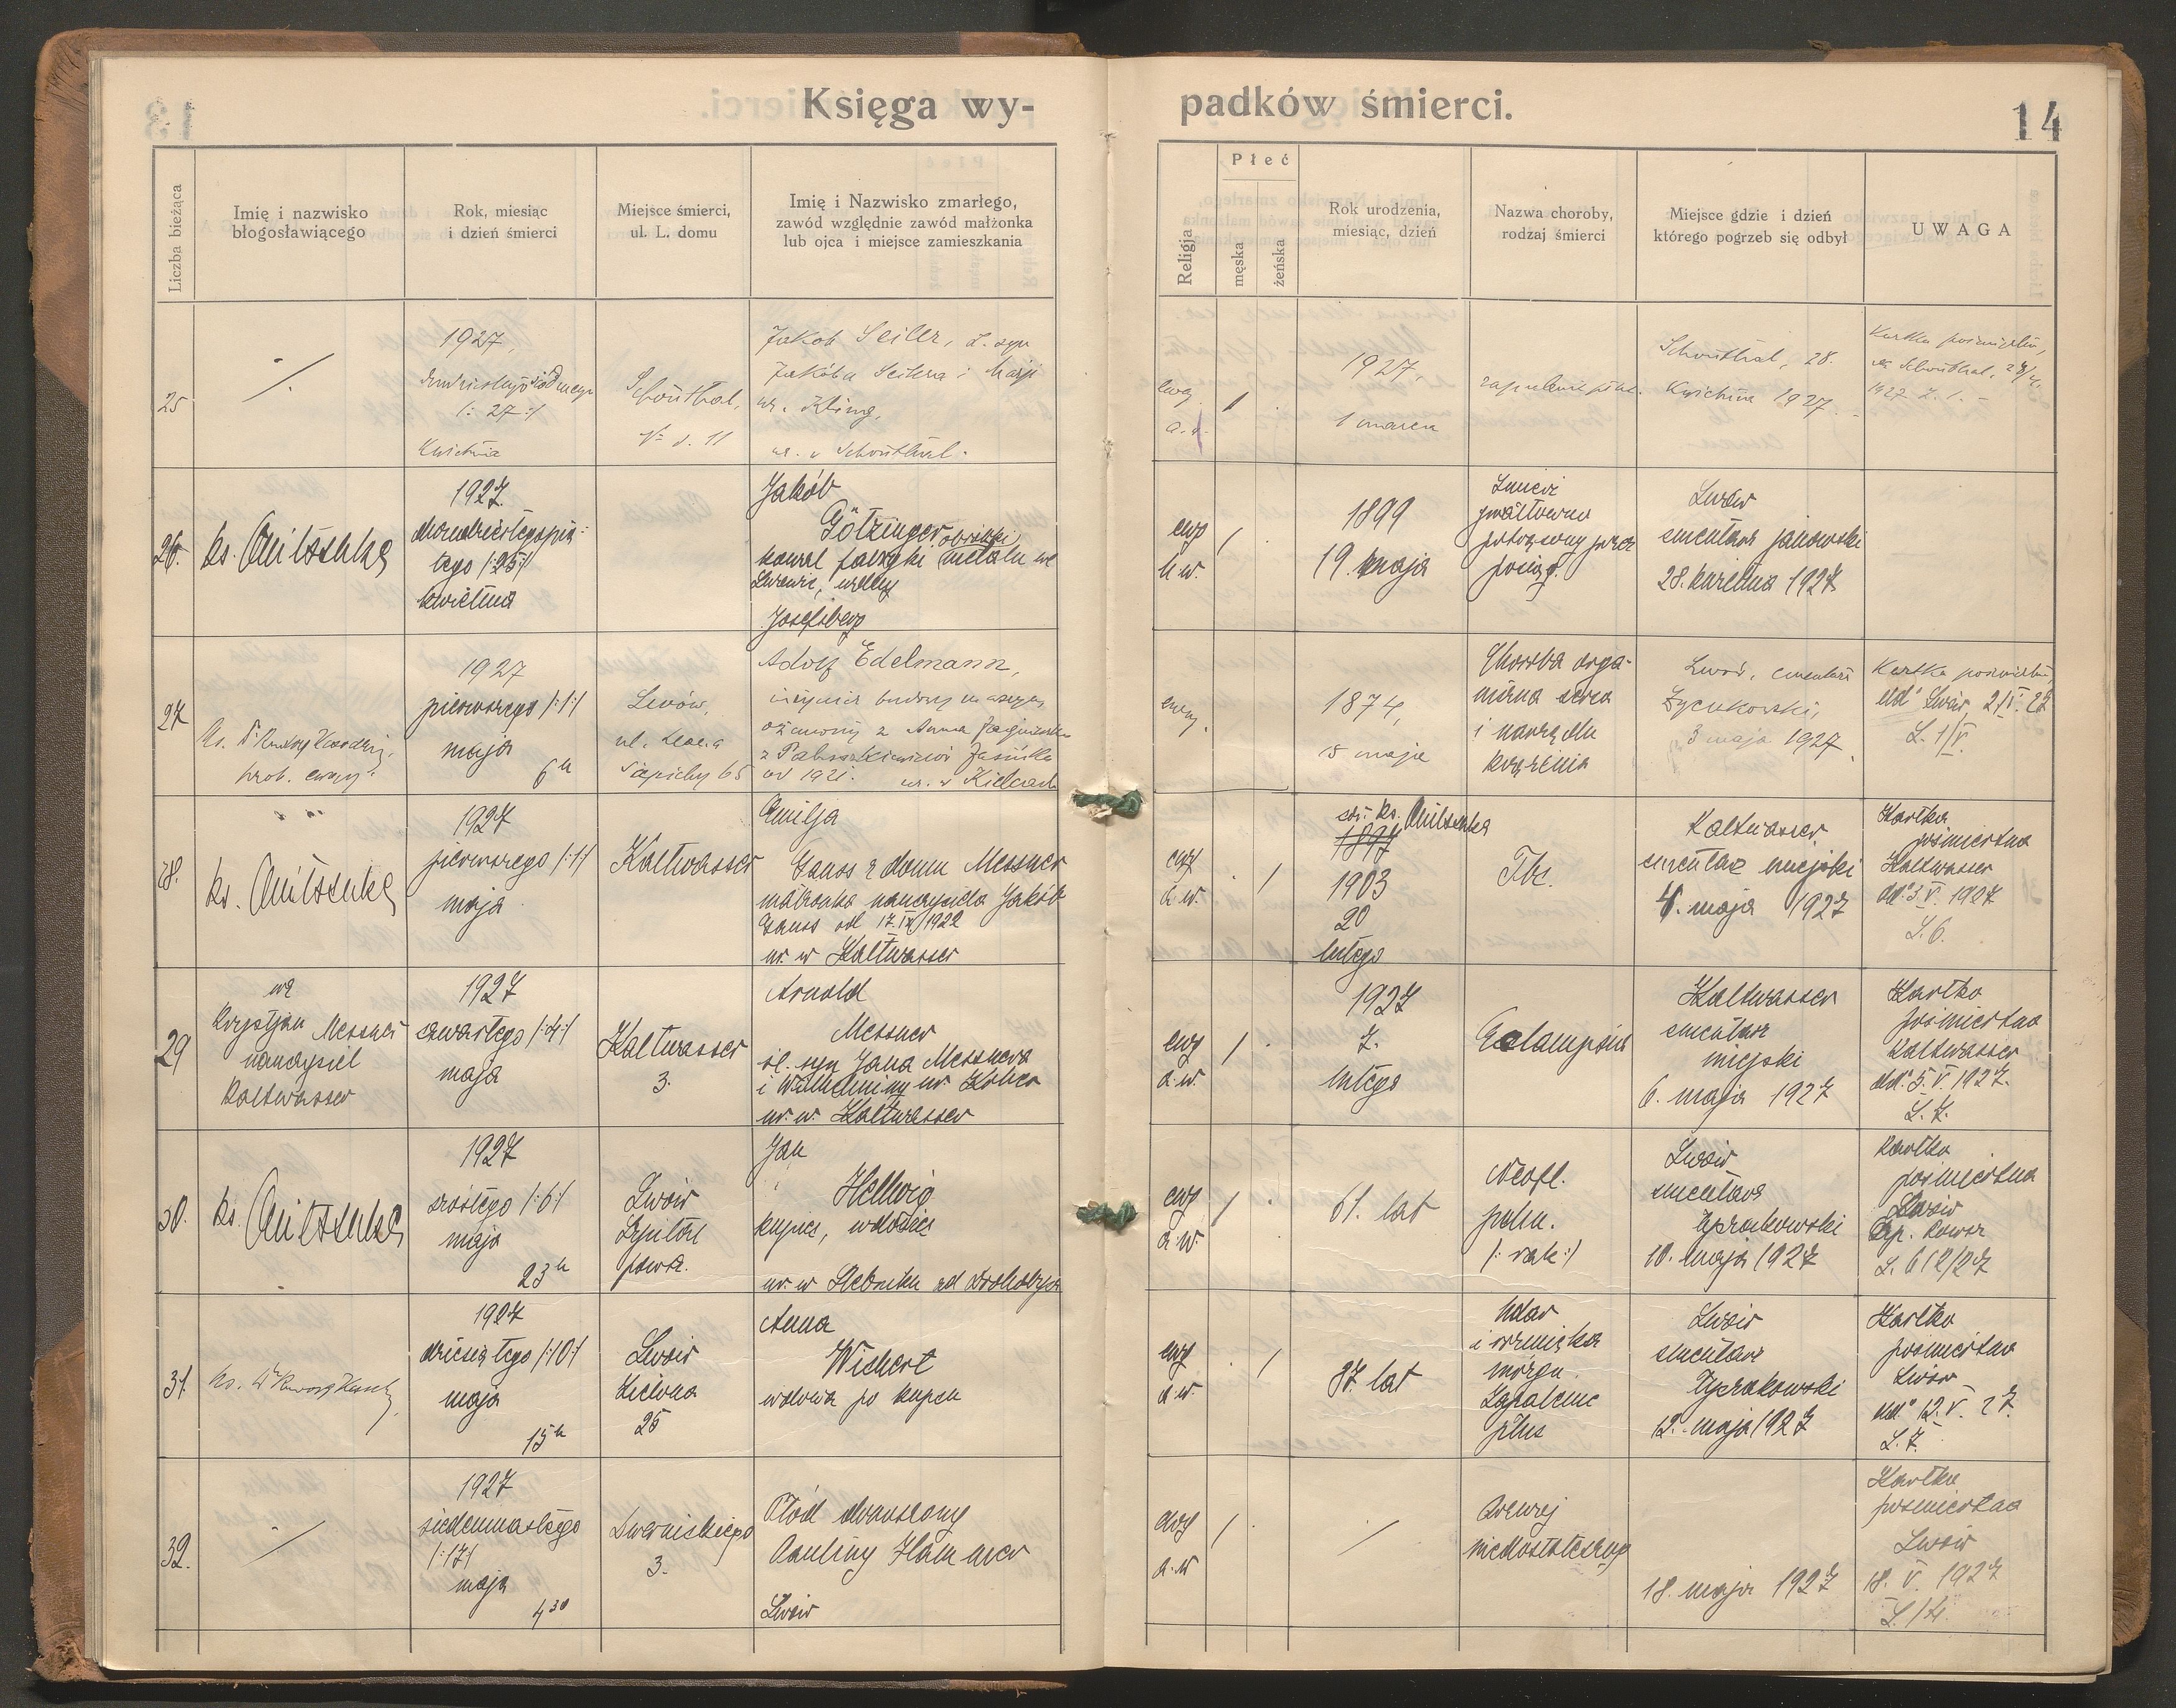 Księga wy-
padków śmierci.
14
Liczba bieżąca
Imię i nazwisko
błogosławiącego
Rok, miesiąc
i dzień śmierci
Miejsce śmierci,
ul. L. domu
Imię i Nazwisko zmarłego,
zawód względnie zawód małżonka
lub ojca i miejsce zamieszkania
Religja
Płeć
męska
żeńska
Rok urodzenia,
miesiąc, dzień
Nazwa choroby,
rodzaj śmierci
Miejsce gdzie i dzień
którego pogrzeb się odbył
UWAGA
25
1927,
/: 27 :/
Kwietnia
Schönthal,
d. 11
Jakob Seiler, syn
Jakóba Seilera i Marji
ur. Kling,
ur. w Schönthal.
ewg
1927,
1 marca
Schönthal, 28.
Kwietnia 1927.
Kartka pośmiertna,
1927 L. 1.
26.
ks.
1927
/:25:/
kwietnia
Jakób
Götzinger
kowal fabryki metalu we
Lwowie,
Josefsberg
ewg
h.w.
1899
19. maja
Śmierć
gwałtowna
przez
pociąg.
Lwów
cmentarz janowski
28. kwietnia 1927
27
prob. ewang.
1927
pierwszego /:1:/
maja
6h
Lwów,
ul. Leona
Sapiehy 65
Adolf Edelmann,
inżynier budowy maszyn,
ożeniony z Anną
od 1921. ur. w Kielcach
1874,
maja
Choroba orga-
niczna serca
i narządu
krążenia
Lwów, cmentarz
Łyczakowski,
3 maja 1927.
Kartka pośmiertna,
dd° Lwów, 2/V. 27
L. 1/V.
28.
ks.
1927
pierwszego /:1:/
maja
Kaltwasser
Emilja
Gauss z domu Messner
małżonka nauczyciela Jakób
Gauss od 17.IX/1922
ur. w Kaltwasser
ewg
a.w.
1897
1903
20
lutego
Tbc.
Kaltwasser
cmentarz miejski
4. maja 1927
Kartka
pośmiertna
Kaltwasser
dd° 3.V. 1927
L. 6.
29
Krystjan Messner
nauczyciel
Kaltwasser
1927
czwartego /:4:/
maja
Kaltwasser
3.
Arnold
Messner
śl. syn Jana Messnera
i Wilhelminy ur. Kolmer
ur. w. Kaltwasser
ewg
a.w.
1927
7.
lutego
Eclampsia
Kaltwasser
cmentarz
miejski
6. maja 1927
Kartka
pośmiertna
Kaltwasser
dd° 5.V. 1927.
L. 7.
30.
ks.
1927
szóstego /:6:/
maja
23h
Lwów
Szpital
powsz.
Jan
Hellwig
kupiec, wdowiec
ur. w Stebniku ad Drohobycz
ewg
a.w.
61. lat
Neopl.
pulm.
/: rak :/
Lwów
cmentarz
łyczakowski
10. maja 1927
Kartka
pośmiertna
Lwów
Szp. Powsz
L. 612/27
31.
1927
dziesiątego /:10:/
maja
15h
Lwów
Zielona
25
Anna
Wichert
wdowa po kupcu
ewg
a.w.
87. lat
Udar
mózgu.
Zapalenie
płuc
Lwów
cmentarz
łyczakowski
12. maja 1927
Kartka
pośmiertna
Lwów
dd° 12.V. 27
L. 7.
32.
1927
siedemnastego
/:17:/
maja
4 30
Dwernickiego
3.
Płód donoszony
Pauliny Hammer
Lwów
ewg
a.w
18. maja 1927
Kartka
pośmiertna
Lwów
18. V. 1927
L. 14.